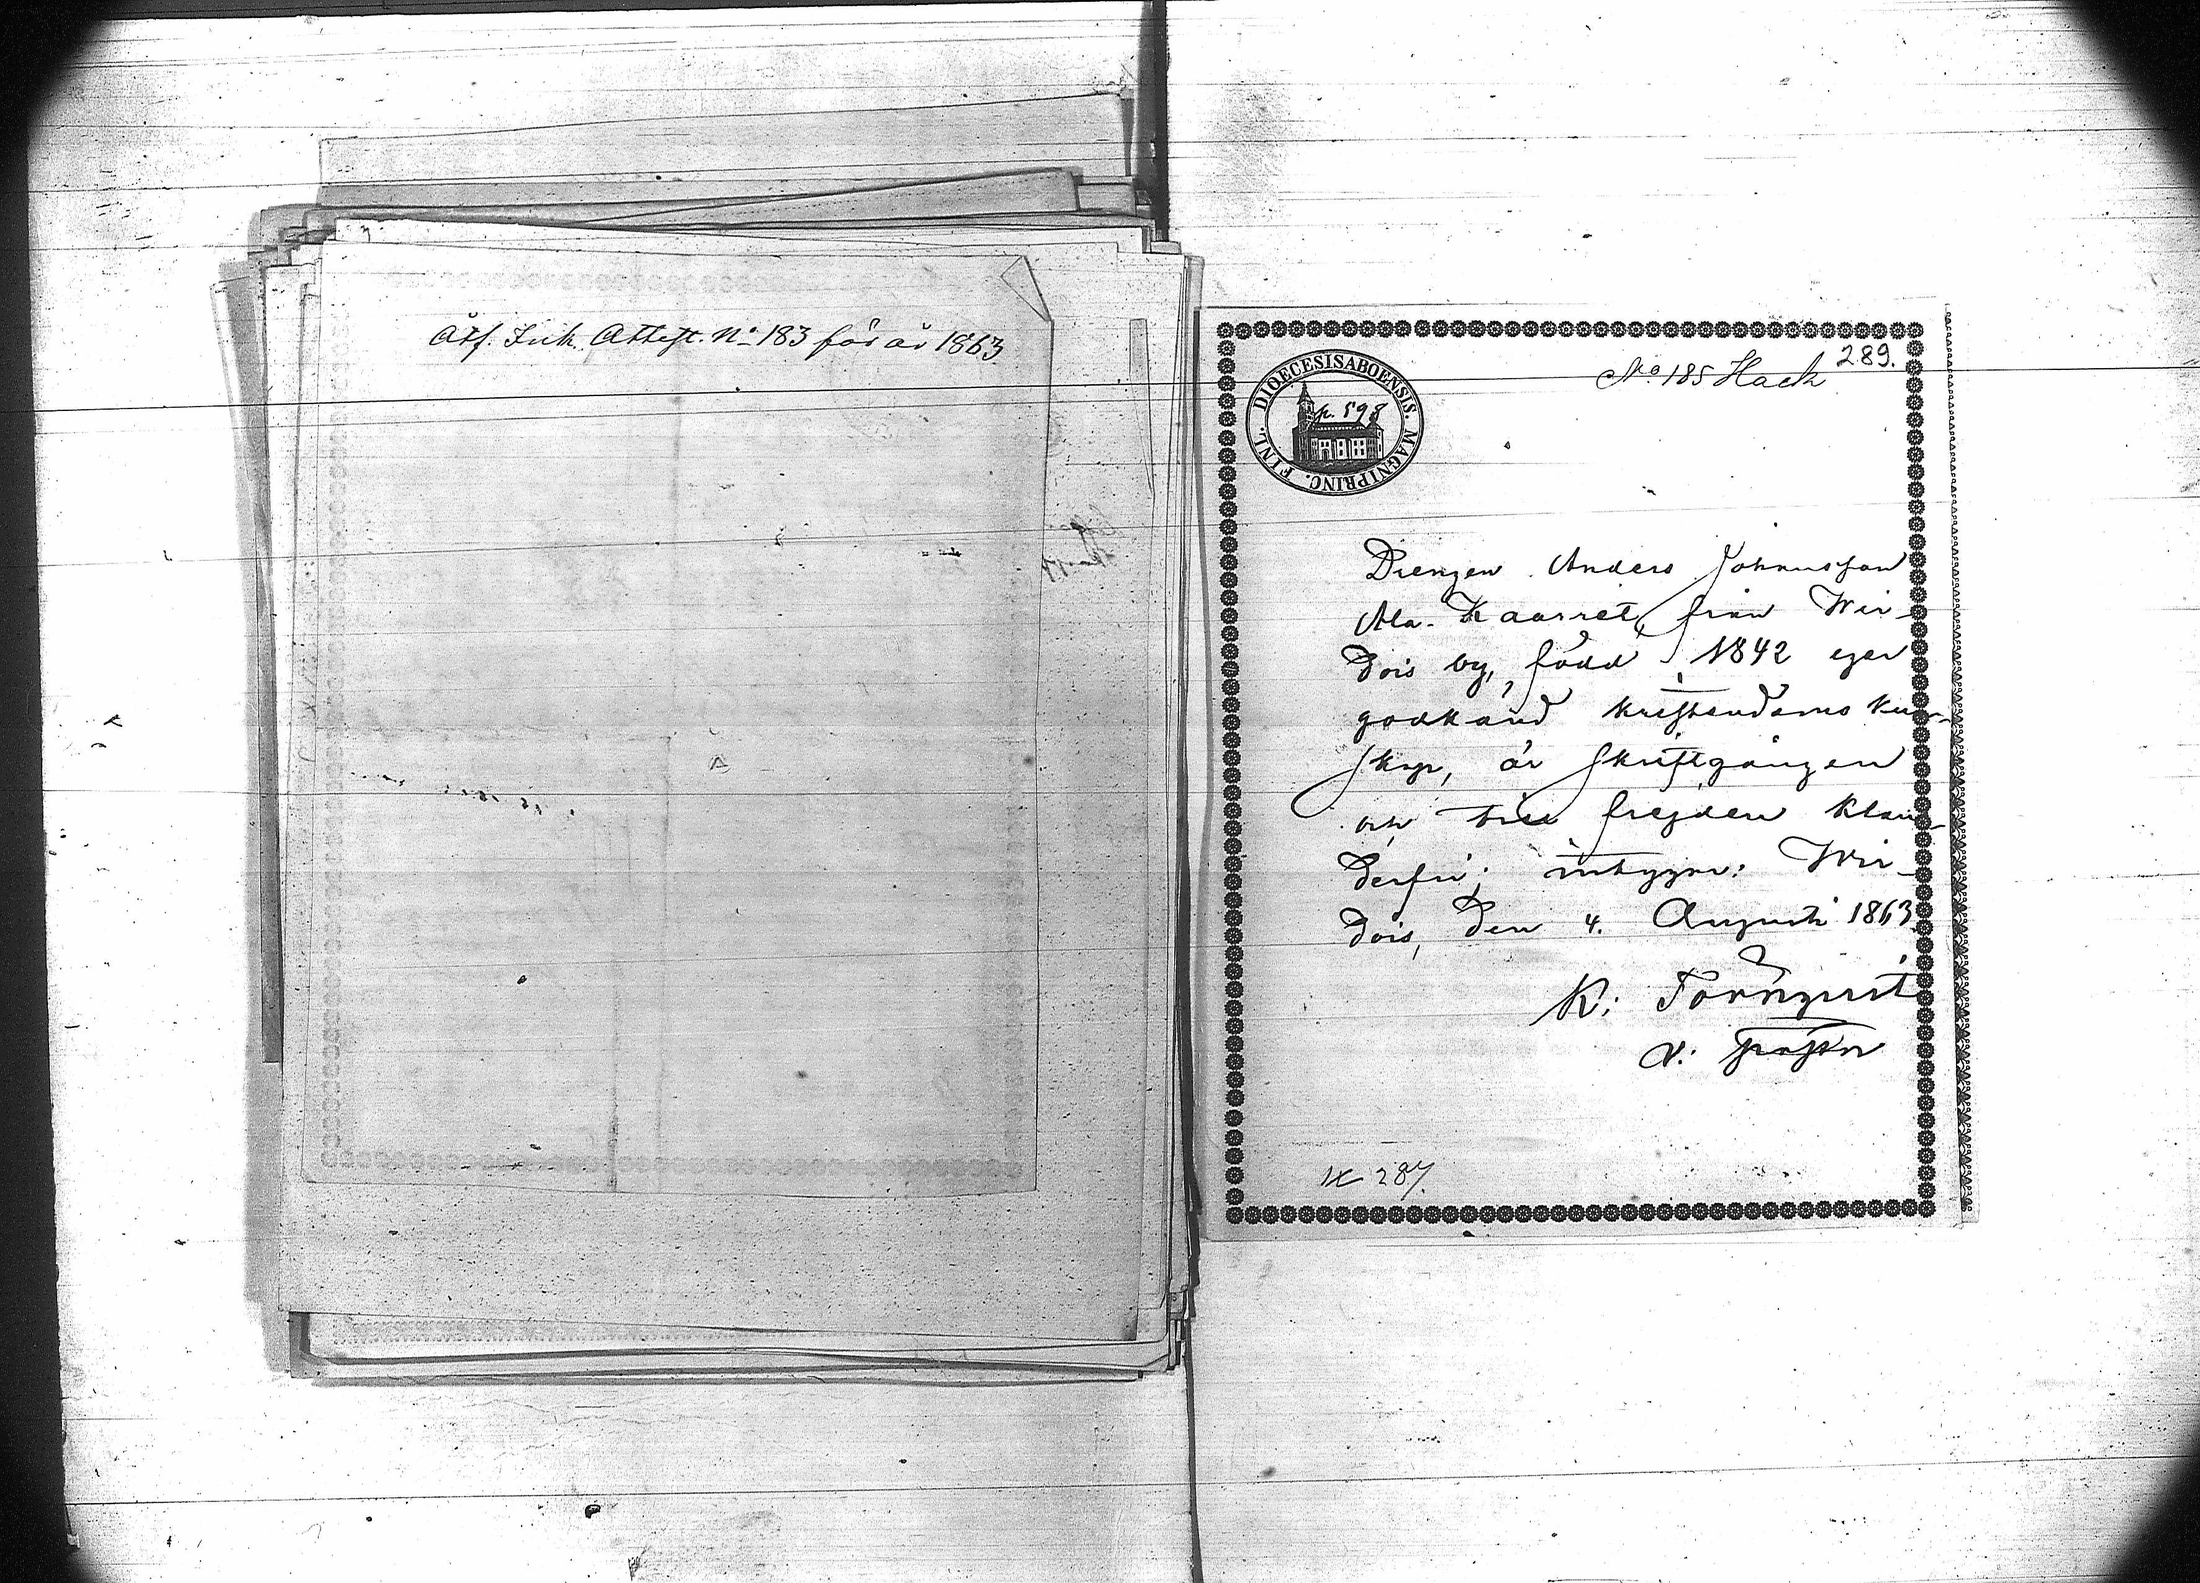 Åtf. Ink. Attest. No 183 för år 1863
289.
No 185 Hack
DIOECESIS ABOENSIS. MAGNI PRINC. FINL.
p. 598
Drengen Anders Johansson
Ala-Kaarret, från Wir-
dois by, född 1842 eger
godkänd kristendoms kun-
skap, är skriftgången
och till frejden klan-
derfri; intygar: Wir-
dois, den 4. Augusti 1863.
K: Törnqvist
v. pastor
287.